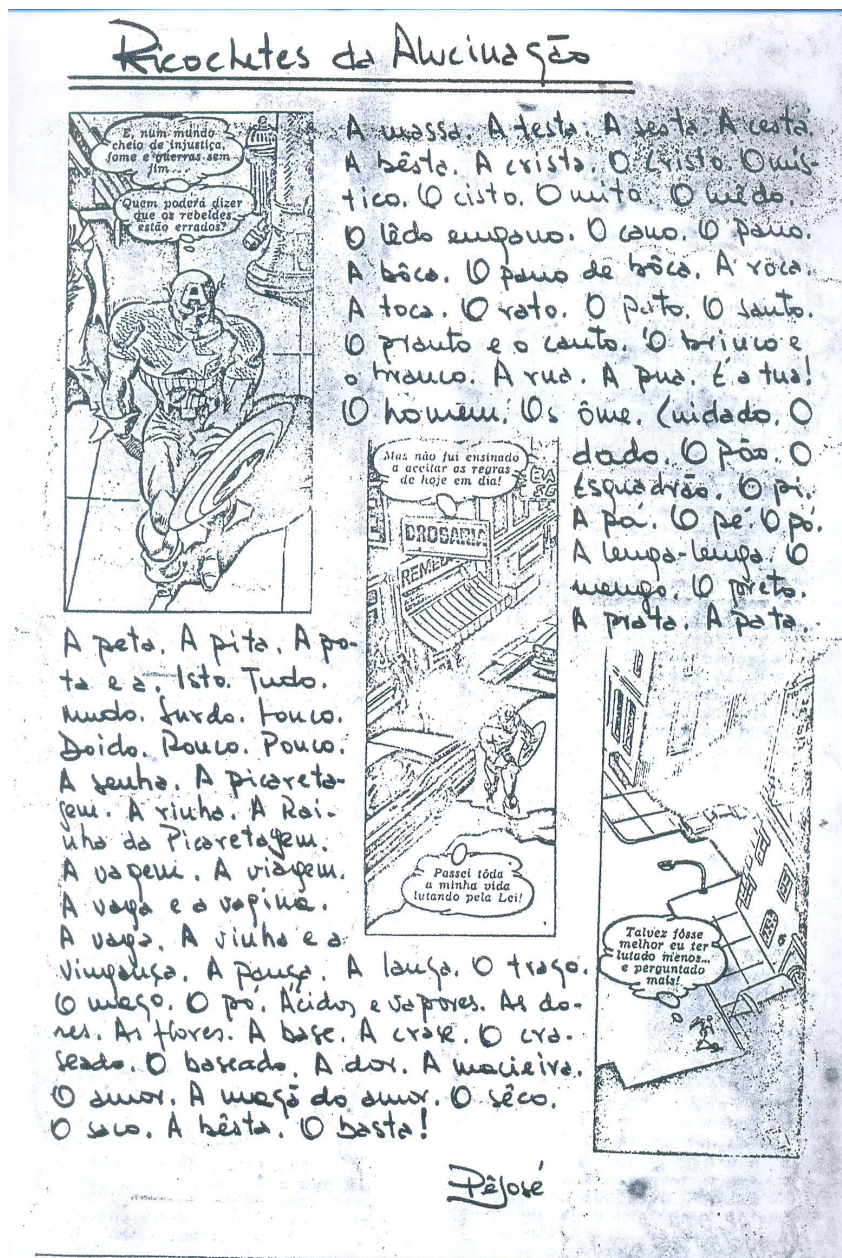 Ricochetes da Alucinação
E, num mundo
cheio de injustiça,
fome e guerras sem
fim...
Quem poderá dizer
que os rebeldes
estão errados?
A
A massa. A testa. A sexta. A cesta.
A bêsta. A crista. O Cristo. O mís-
tico. O cisto. O mito. O mêdo.
O lêdo engano. O cano. O pano.
A bôca. O pano de bôca. A roca.
A toca. O rato. O pato. O santo.
O pranto e o canto. O brinco e
o branco. A rua. A pua. É a tua!
O homem. Os ôme. Cuidado. O
dado. O pão. O
Esquadrão. O pi.
A pá. O pé. O pó.
A lenga-lenga. O
mengo. O preto.
A prata. A pata.
Mas não fui ensinado
a aceitar as regras
de hoje em dia!
DROGARIA
REMED
Passei tôda
a minha vida
lutando pela Lei!
A peta. A pita. A po-
ta e a. Isto. Tudo.
Mudo. Surdo. Louco.
Doido. Rouco. Pouco.
A senha. A picareta-
gem. A rinha. A Rai-
nha da Picaretagem.
A vagem. A viagem.
A vaga e a vagina.
A vaga. A vinha e a
vingança. A pança. A lança. O trago.
O mago. O pó. Ácidos e vapores. As do-
res. As flores. A base. A crase. O cra-
seado. O baseado. A dor. A macieira.
O amor. A maçã do amor. O sêco.
O saco. A bêsta. O basta!
Talvez fôsse
melhor eu ter
lutado menos...
e perguntado
mais!
PêJosé